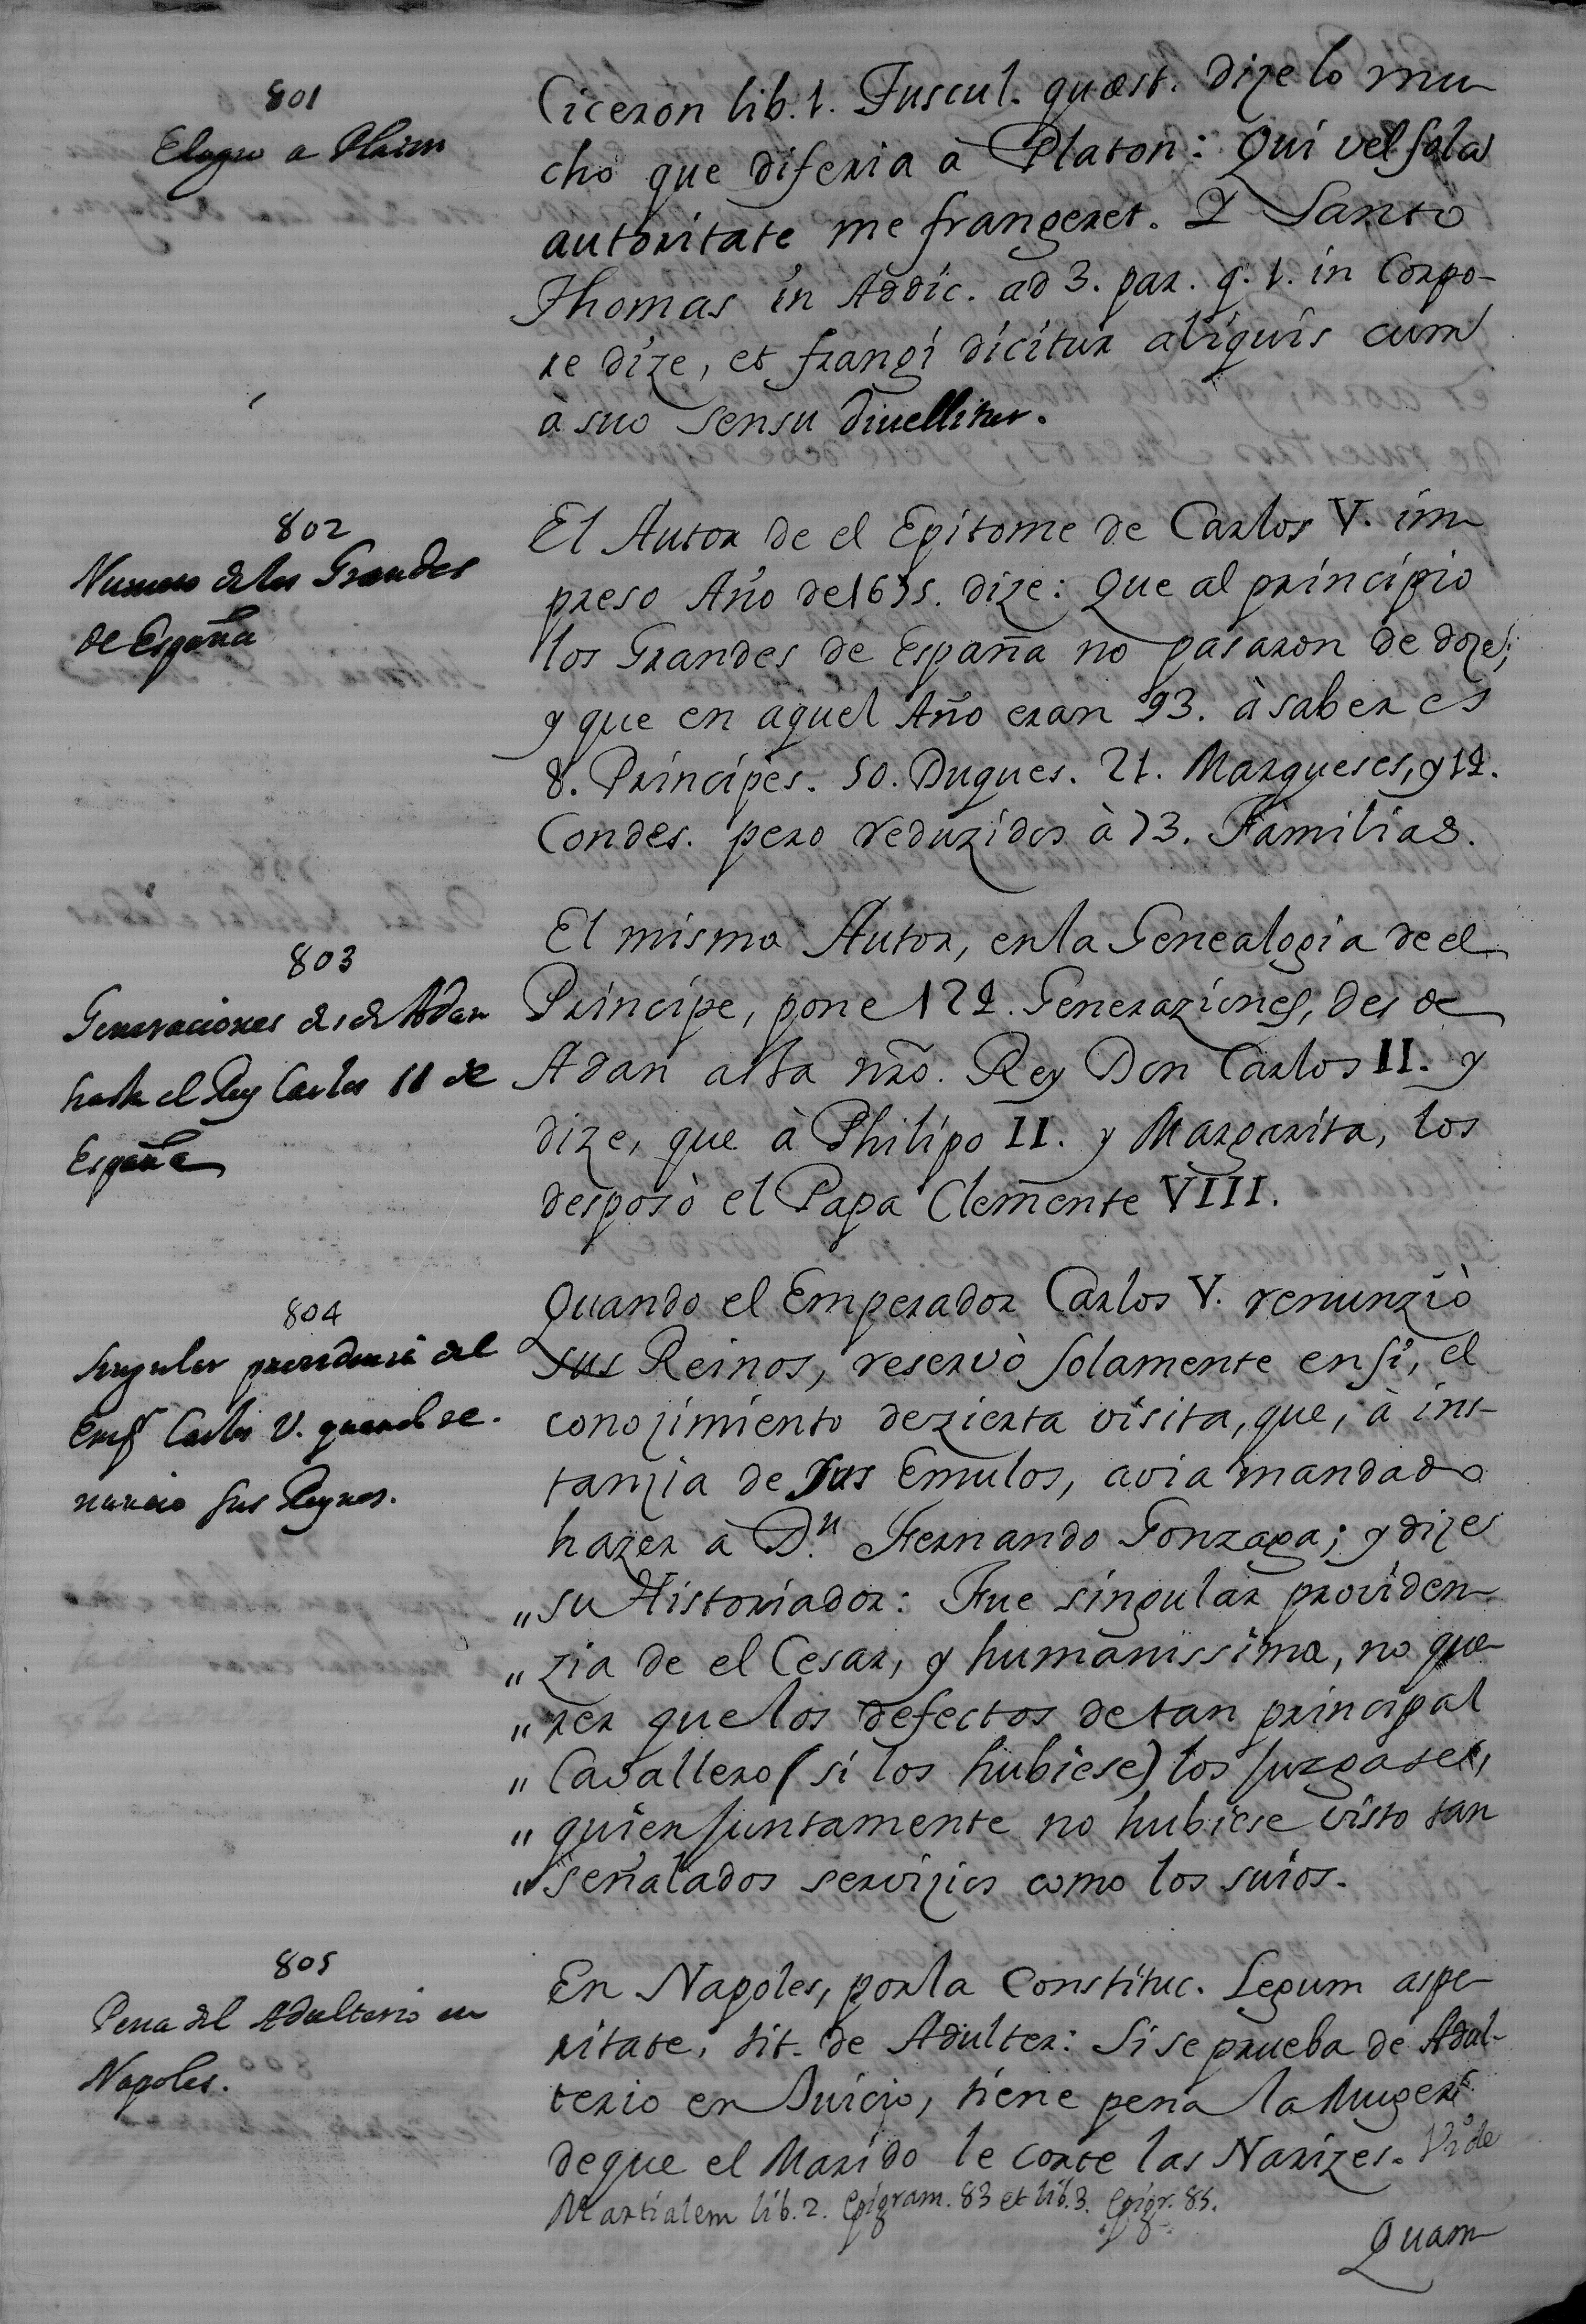 801
Elogio a Platon
Ciceron lib. 1. Tuscul. quæst. dize lo mu-
cho que diferia à Platon: Qui vel sola
autoritate me frangeret. I Santo
Thomas in Addic. ad 3. par. q. 1. in Corpo-
re dize, et frangi dicitur aliquis cum
à suo sensu divellitur.
802
Numero de los Grandes
de España
El Autor de el Epitome de Carlos V. im-
preso Año de 1655. dize: Que al principio
los Grandes de España no pasaron de doze;
y que en aquel Año eran 93. à saber es
8. Principes. 50. Duques. 21. Marqueses, y 14.
Condes. pero reduzidos à 73. Familias.
803
Generaciones desde Adan
hasta el Rey Carlos II de
España
El mismo Autor, en la Genealogia de el
Principe, pone 122. Generaziones, des de
Adan asta nro. Rey Don Carlos II. y
dize, que à Philipo II. y Margarita, los
desposò el Papa Clemente VIII.
804
Singular providencia del
Empr Carlos V. quando re-
nuncio sus Reynos.
Quando el Emperador Carlos V. renunziò
sus Reinos, reservò solamente en si, el
conozimiento de zierta visita, que, à ins-
tanzia de sus Emulos, avia mandado
hazer à Dn. Fernando Gonzaga; y dize
„ su Historiador: Fue singular providen-
„ zia de el Cesar, y humanissima, no que-
„ rer que los defectos de tan principal
„ Cavallero (si los hubiese) los juzgase,
„ quien juntamente no hubiese visto tan
„ señalados servizios como los suios.
805
Pena del Adulterio en
Napoles.
En Napoles, por la Constituc. Legum aspe-
ritate, tit. de Adulter: Si se prueba de Adul-
terio en Juicio, tiene pena la Muger
de que el Marido le corte las Narizes. Vide
Martialem lib. 2. Epigram. 83 et lib. 3. Epigr. 85.
Quam